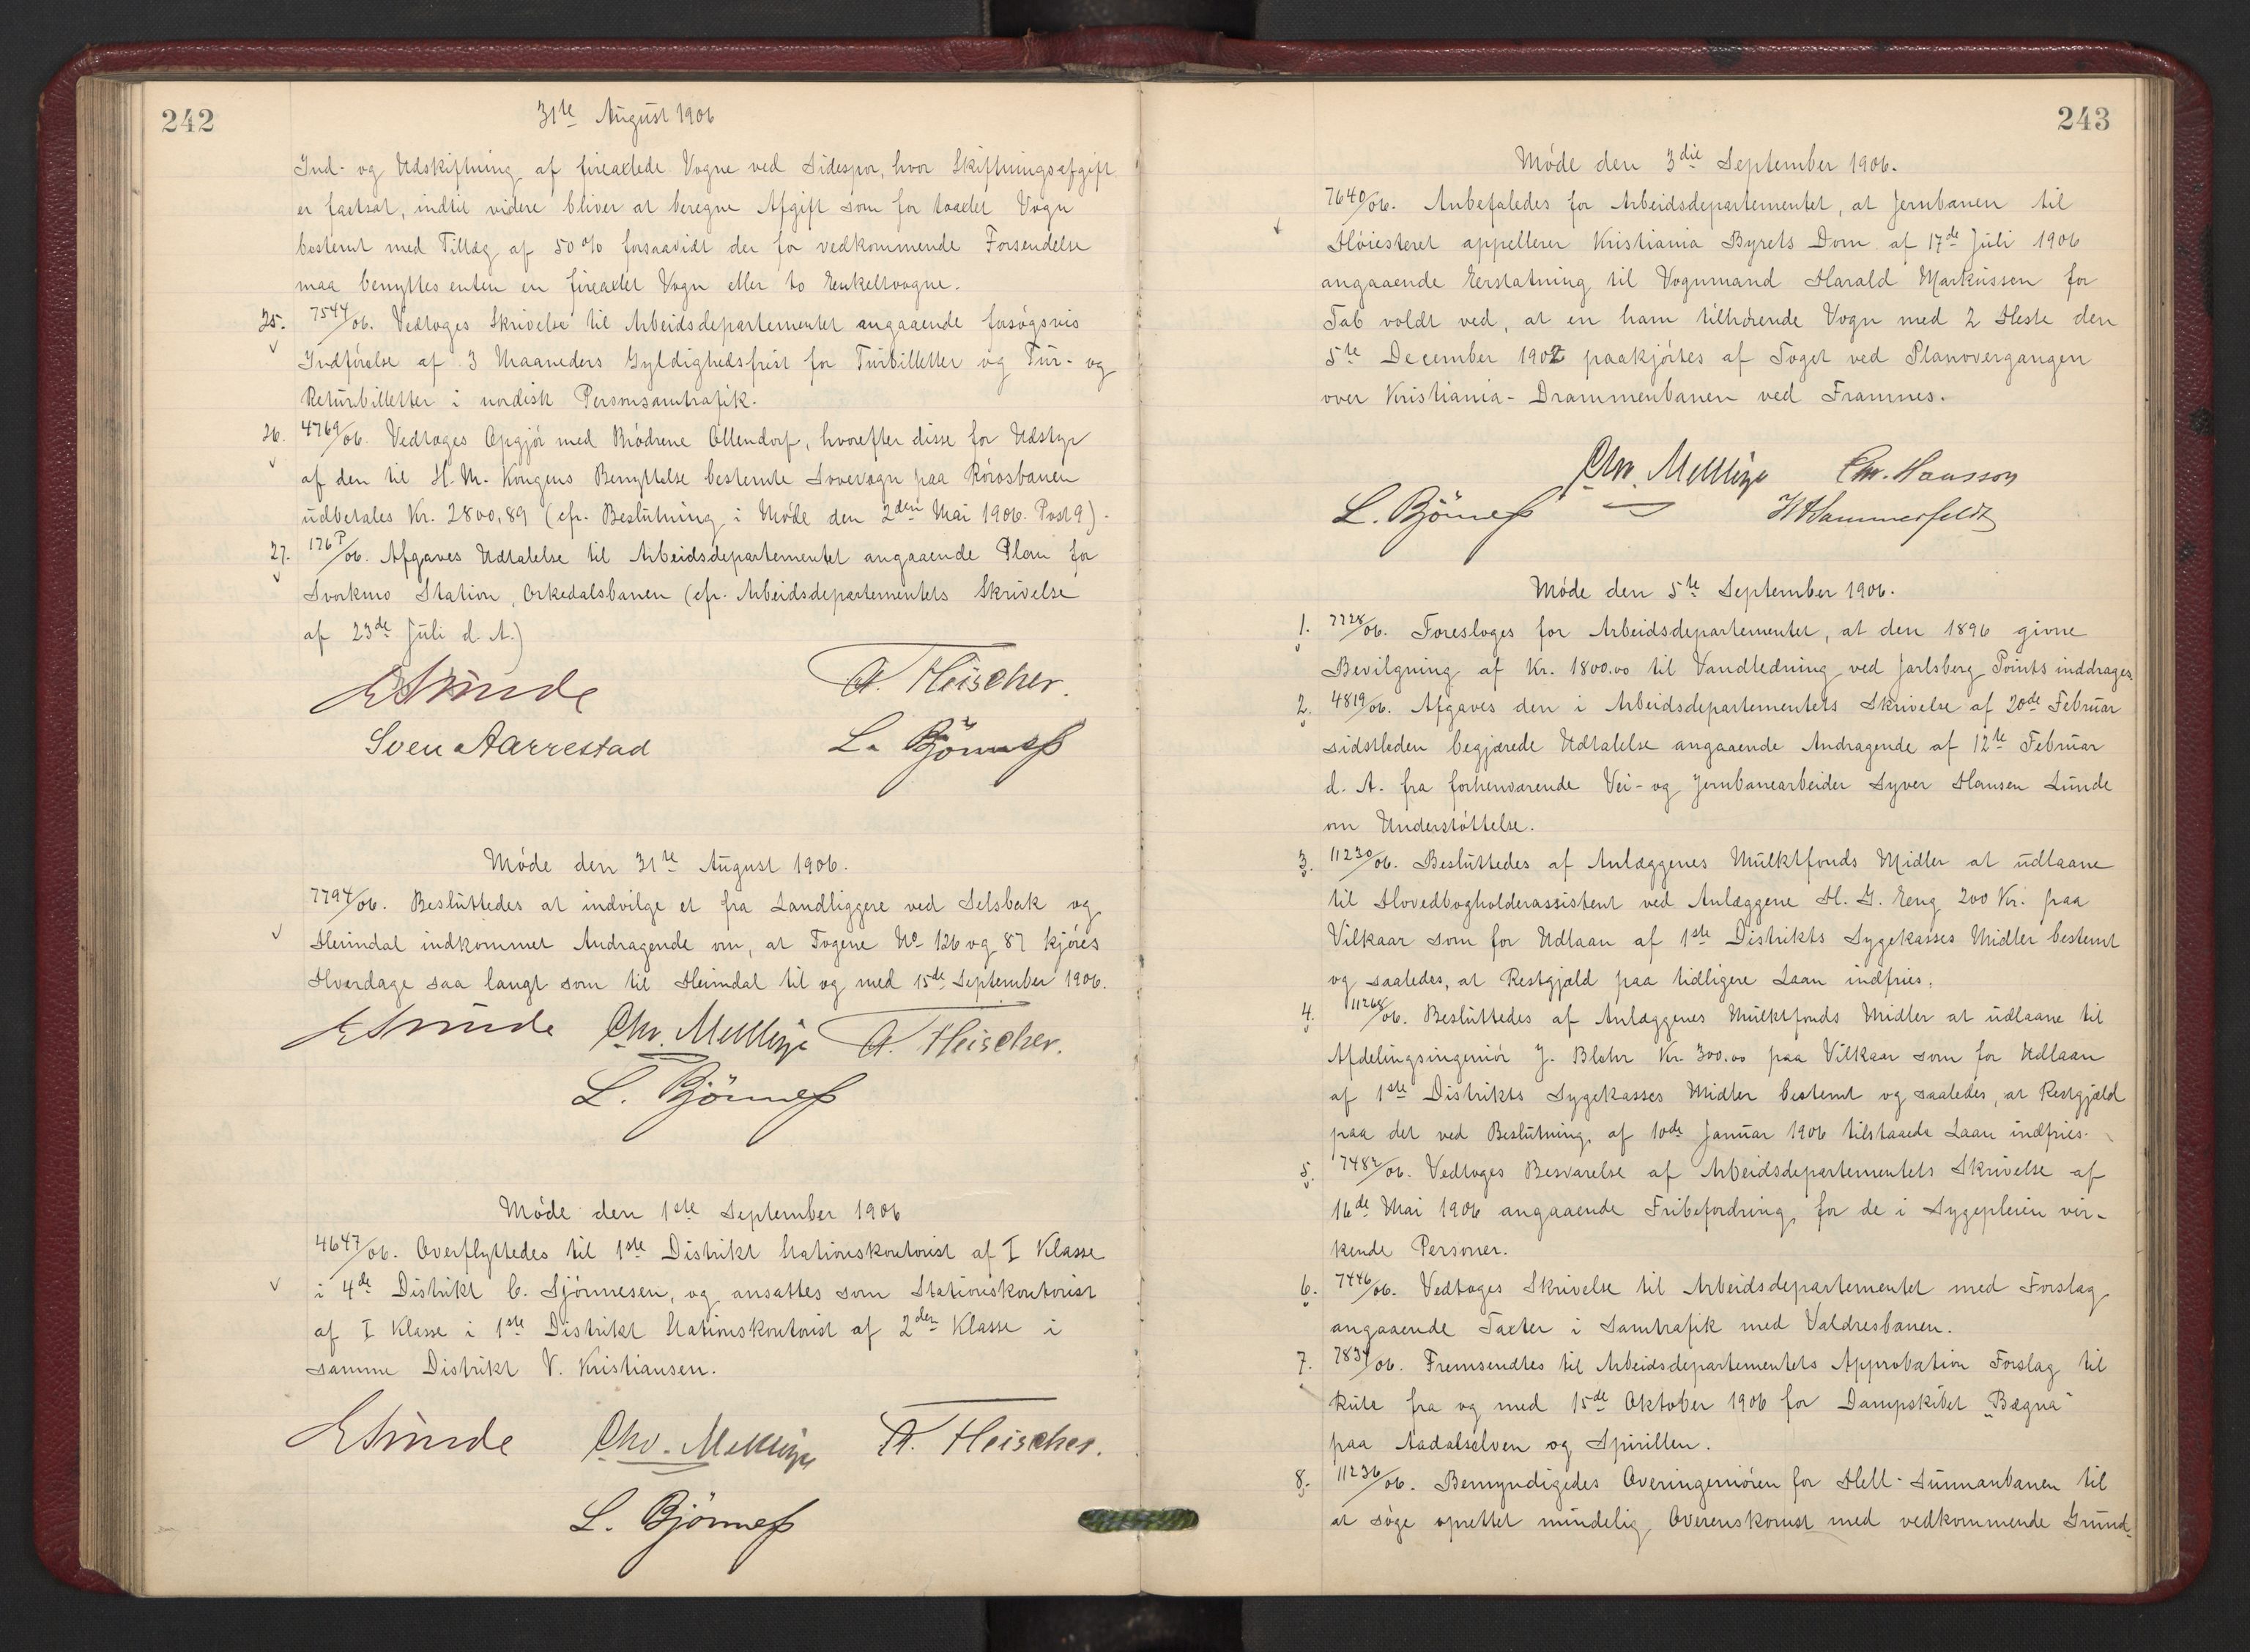 242
31te August 1906
Ind- og Udskiftning af fireaxlede Vogne ved Sidespor, hvor Skiftningsafgift
er fastsat, indtil videre bliver at beregne Afgift som for toaxlet Vogn
bestemt med Tillæg af 50 % forsaavidt der for vedkommende Forsendelse
maa benyttes enten en fireaxlet Vogn eller to Enkeltvogne.
25. 7544/06. Vedtoges Skrivelse til Arbeidsdepartementet angaaende forsøgsvis
Indførelse af 3 Maaneders Gyldighedsfrist for Turbilletter og Tur- og
Returbilletter i nordisk Personsamtrafik.
26. 4769/06. Vedtoges Opgjør med Brødrene Ollendorf, hvorefter disse for Udstyr
af den til H. M. Kongens Benyttelse bestemte Sovevogn paa Rørosbanen
udbetales Kr. 2800,89 (cfr. Beslutning i Møde den 2den Mai 1906. Post 9).
27. 176P/06. Afgaves Udtalelse til Arbeidsdepartementet angaaende Plan for
Svorkmo Station, Orkedalsbanen (cfr. Arbeidsdepartementets Skrivelse
af 23de Juli d. A.)
E Sunde A. Fleischer.
Sven Aarrestad L. Bjørness
Møde den 31te August 1906.
7794/06. Besluttedes at indvilge et fra Landliggere ved Selsbak og
Heimdal indkommet Andragende om, at Togene No 126 og 87 kjøres
Hverdage saa langt som til Heimdal til og med 15de September 1906.
E Sunde Chr. Mellbye A. Fleischer.
L. Bjørness
Møde den 1ste September 1906
4647/06. Overflyttedes til 1ste Distrikt Stationskontorist af I Klasse
i 4de Distrikt C. Sjønnesen, og ansattes som Stationskontorist
af I Klasse i 1ste Distrikt Stationskontorist af 2den Klasse i
samme Distrikt V. Kristiansen.
E Sunde Chr. Mellbye A. Fleischer.
L. Bjørness
243
Møde den 3die September 1906.
7640/06. Anbefaledes for Arbeidsdepartementet, at Jernbanen til
Høiesteret appellerer Kristiania Byrets Dom af 17de Juli 1906
angaaende Erstatning til Vognmand Harald Markussen for
Tab voldt ved, at en ham tilhørende Vogn med 2 Heste den
5te December 1902 paakjørtes af Toget ved Planovergangen
over Kristiania-Drammenbanen ved Framnes.
Chr. Mellbye Chr. Hansson
L. Bjørness H Hammerfeldt
Møde den 5te September 1906.
1. 7728/06. Foresloges for Arbeidsdepartementet, at den 1896 givne
Bevilgning af Kr. 1800.00 til Vandledning ved Jarlsberg Points inddrages.
2. 4819/06. Afgaves den i Arbeidsdepartementets Skrivelse af 20de Februar
sidstleden begjærede Udtalelse angaaende Andragende af 12te Februar
d. A. fra forhenværende Vei- og Jernbanearbeider Syver Hansen Lunde
om Understøttelse.
3. 11230/06. Besluttedes af Anlæggenes Mulktfonds Midler at udlaane
til Hovedbogholderassistent ved Anlæggene H. G. Eng 200 Kr. paa
Vilkaar som for Udlaan af 1ste Distrikts Sygekasses Midler bestemt
og saaledes, at Restgjæld paa tidligere Laan indfries.
4. 11268/06. Besluttedes af Anlæggenes Mulktfonds Midler at udlaane til
Afdelingsingeniør J. Blehr Kr. 300.00 paa Vilkaar som for Udlaan
af 1ste Distrikts Sygekasses Midler bestemt og saaledes, at Restgjæld
paa det ved Beslutning af 10de Januar 1906 tilstaaede Laan indfries.
5. 7482/06. Vedtoges Besvarelse af Arbeidsdepartementets Skrivelse af
16de Mai 1906 angaaende Fribefordring for de i Sygepleien vir-
kende Personer.
6. 7446/06. Vedtoges Skrivelse til Arbeidsdepartementet med Forslag
angaaende Taxter i Samtrafik med Valdresbanen.
7. 7834/06. Fremsendtes til Arbeidsdepartementets Approbation Forslag til
Rute fra og med 15de Oktober 1906 for Dampskibet „Bægna“
paa Aadalselven og Spirillen.
8. 11236/06. Bemyndigedes Overingeniøren for Hell-Sunnanbanen til
at søge oprettet mindelig Overenskomst med vedkommende Grund-